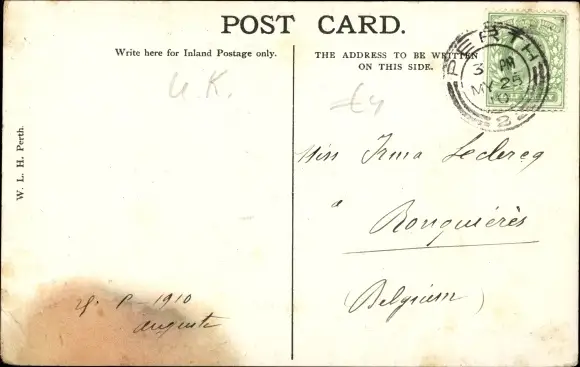 POST CARD.
Write here for Inland Postage only.
THE ADDRESS TO BE WRITTEN
ON THIS SIDE.
PERTH
3 PM
MY 25
10
2
U.K.
£4
W. L. H. Perth.
Miss Irma Leclercq
à
Ronquières
(Belgium)
1910
Auguste